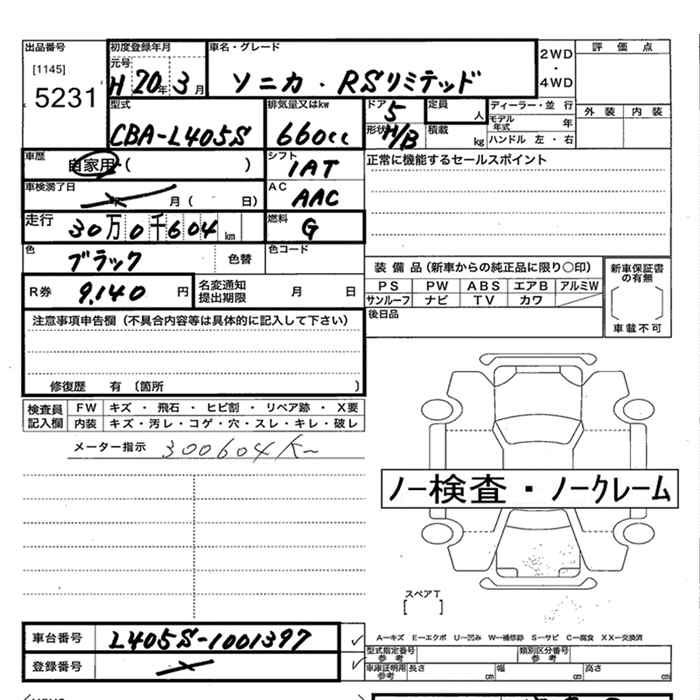 出品番号 [1145] 5231
初度登録年月 元号 H 20年 3月
車名・グレード ソニカ・RSリミテッド
2WD・4WD
評価点
型式 CBA-L405S
排気量又はkw 660cc
ドア 5 形状 H/B
定員 人
積載 kg
ディーラー・並 行
モデル年式 年
ハンドル 左・右
外装 内装
車歴 自家用・( )
シフト 1AT
正常に機能するセールスポイント
車検満了日 年 月( 日)
AC AAC
走行 30万0千604km
燃料 G
色 ブラック 色替
色コード
R券 9,140 円
名変通知提出期限 月 日
装備品(新車からの純正品に限り○印)
PS PW ABS エアB アルミW
サンルーフ ナビ TV カワ
新車保証書の有無
車載不可
後日品
注意事項申告欄(不具合内容等は具体的に記入して下さい)
修復歴 有 〔箇所 〕
検査員記入欄
FW キズ・飛石・ヒビ割・リペア跡・X要
内装 キズ・汚レ・コゲ・穴・スレ・キレ・破レ
メーター指示 300604K
ノー検査・ノークレーム
スペアT
[ ]
車台番号 L405S-1001397
登録番号
A…キズ E…エクボ U…凹み W…補修跡 S…サビ C…腐食 XX…交換済
型式指定番号 参考
類別区分番号 参考
車庫証明用 参考 長さ cm 幅 cm 高さ cm